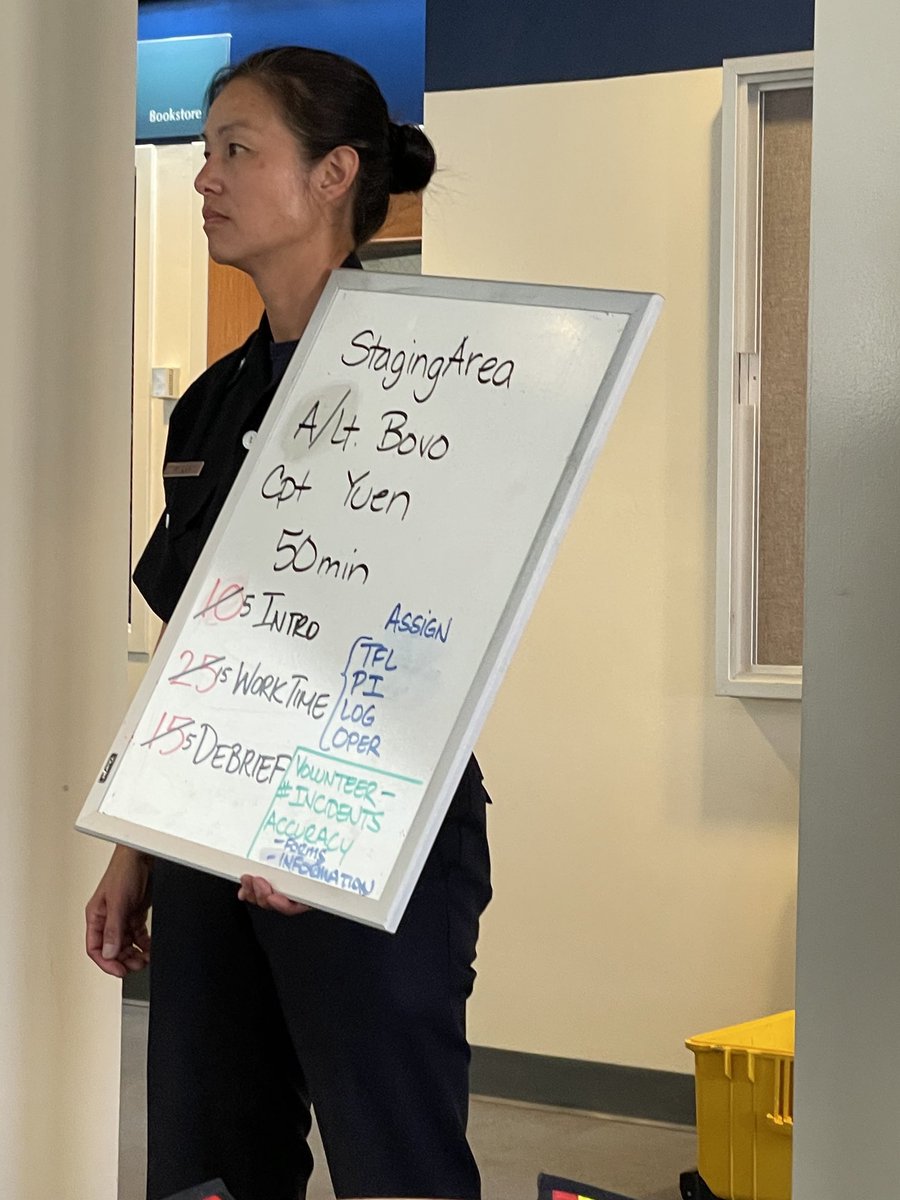 Bookstore
Staging Area
A/Lt. Bovo
Cpt Yuen
50min
10 5 INTRO
25 15 WORK TIME
15 5 DEBRIEF
ASSIGN
TFL
PI
LOG
OPER
VOLUNTEER -
# INCIDENTS
ACCURACY
- FORMS
- INFORMATION